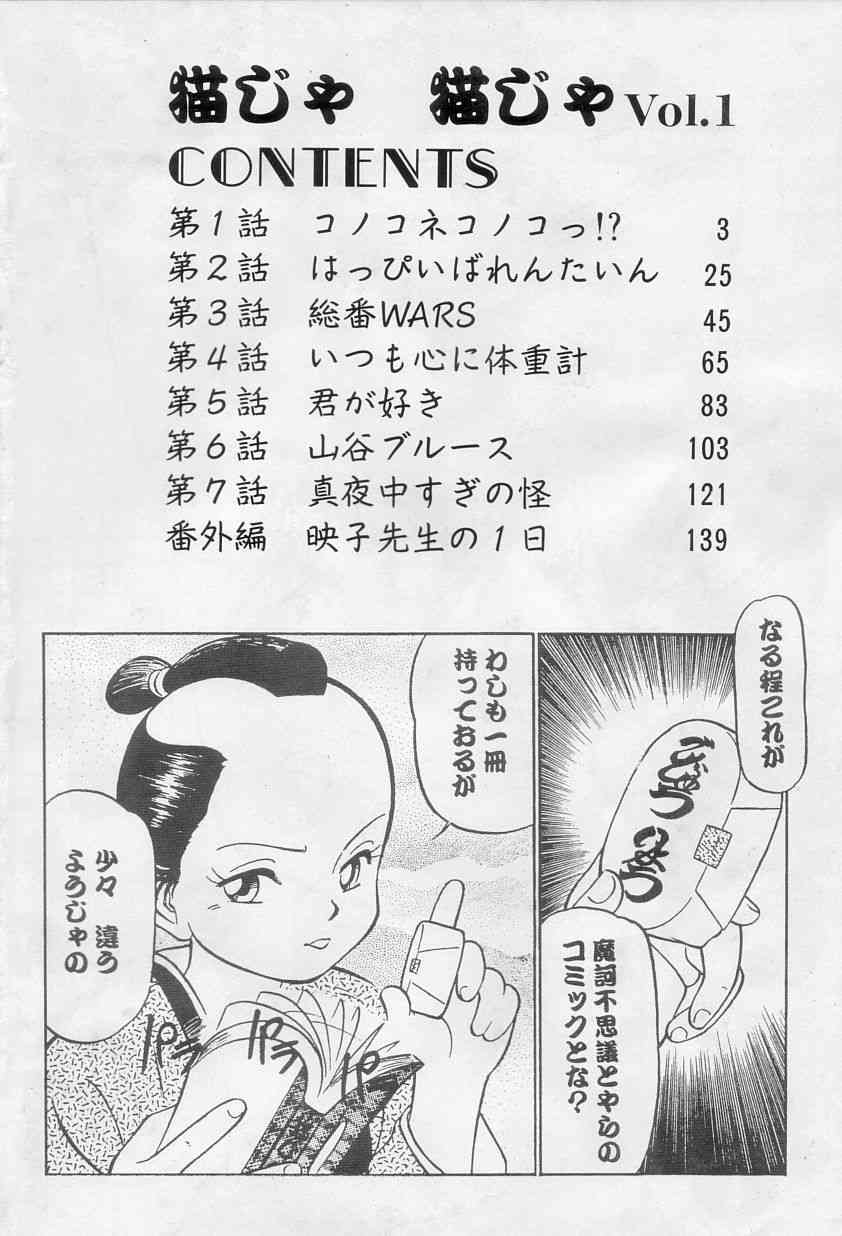 猫じゃ 猫じゃ Vol.1
CONTENTS
第1話 コノコネコノコっ!? 3
第2話 はっぴいばれんたいん 25
第3話 総番WARS 45
第4話 いつも心に体重計 65
第5話 君が好き 83
第6話 山谷ブルース 103
第7話 真夜中すぎの怪 121
番外編 映子先生の1日 139
なる程これが
魔訶不思議とやらの
コミックとな?
わしも一冊
持っておるが
少々 違う
ようじゃの
パラ
パラ
パラ